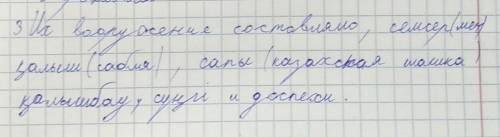 3 Их вооружение составляло, семсер (меч)
қалыш (сабля), сапы (казахская шашка)
қалышбау, сүңгі и доспехи.